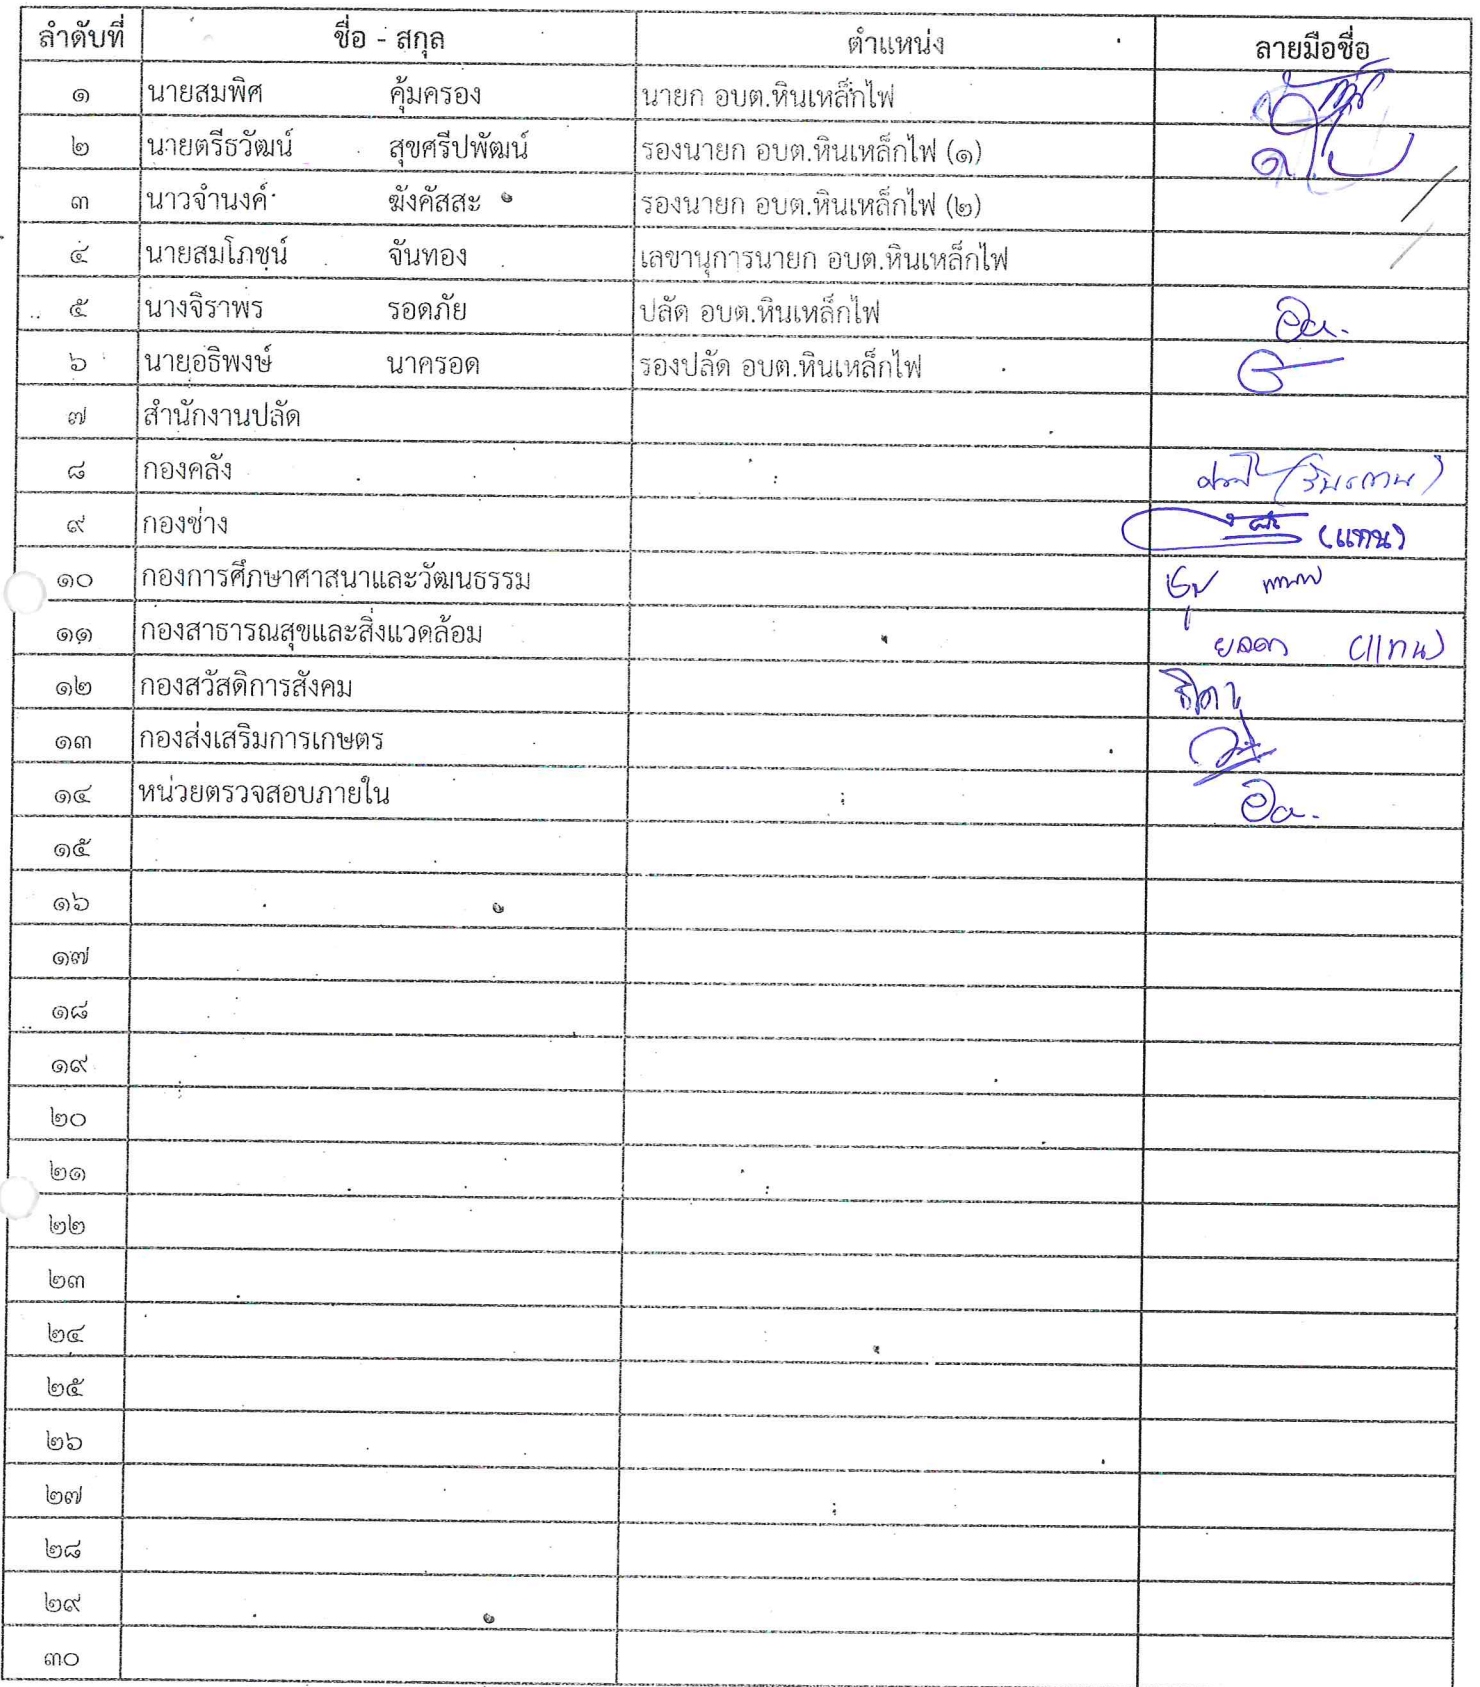 ลำดับที่ ชื่อ - สกุล ตำแหน่ง ลายมือชื่อ
๑ นายสมพิศ คุ้มครอง นายก อบต.หินเหล็กไฟ
๒ นายตรีธวัฒน์ สุขศรีปพัฒน์ รองนายก อบต.หินเหล็กไฟ (๑)
๓ นาวจำนงค์ ฆังคัสสะ รองนายก อบต.หินเหล็กไฟ (๒)
๔ นายสมโภชน์ จันทอง เลขานุการนายก อบต.หินเหล็กไฟ
๕ นางจิราพร รอดภัย ปลัด อบต.หินเหล็กไฟ
๖ นายอธิพงษ์ นาครอด รองปลัด อบต.หินเหล็กไฟ
๗ สำนักงานปลัด
๘ กองคลัง
๙ กองช่าง (แทน)
๑๐ กองการศึกษาศาสนาและวัฒนธรรม
๑๑ กองสาธารณสุขและสิ่งแวดล้อม (แทน)
๑๒ กองสวัสดิการสังคม
๑๓ กองส่งเสริมการเกษตร
๑๔ หน่วยตรวจสอบภายใน
๑๕
๑๖
๑๗
๑๘
๑๙
๒๐
๒๑
๒๒
๒๓
๒๔
๒๕
๒๖
๒๗
๒๘
๒๙
๓๐